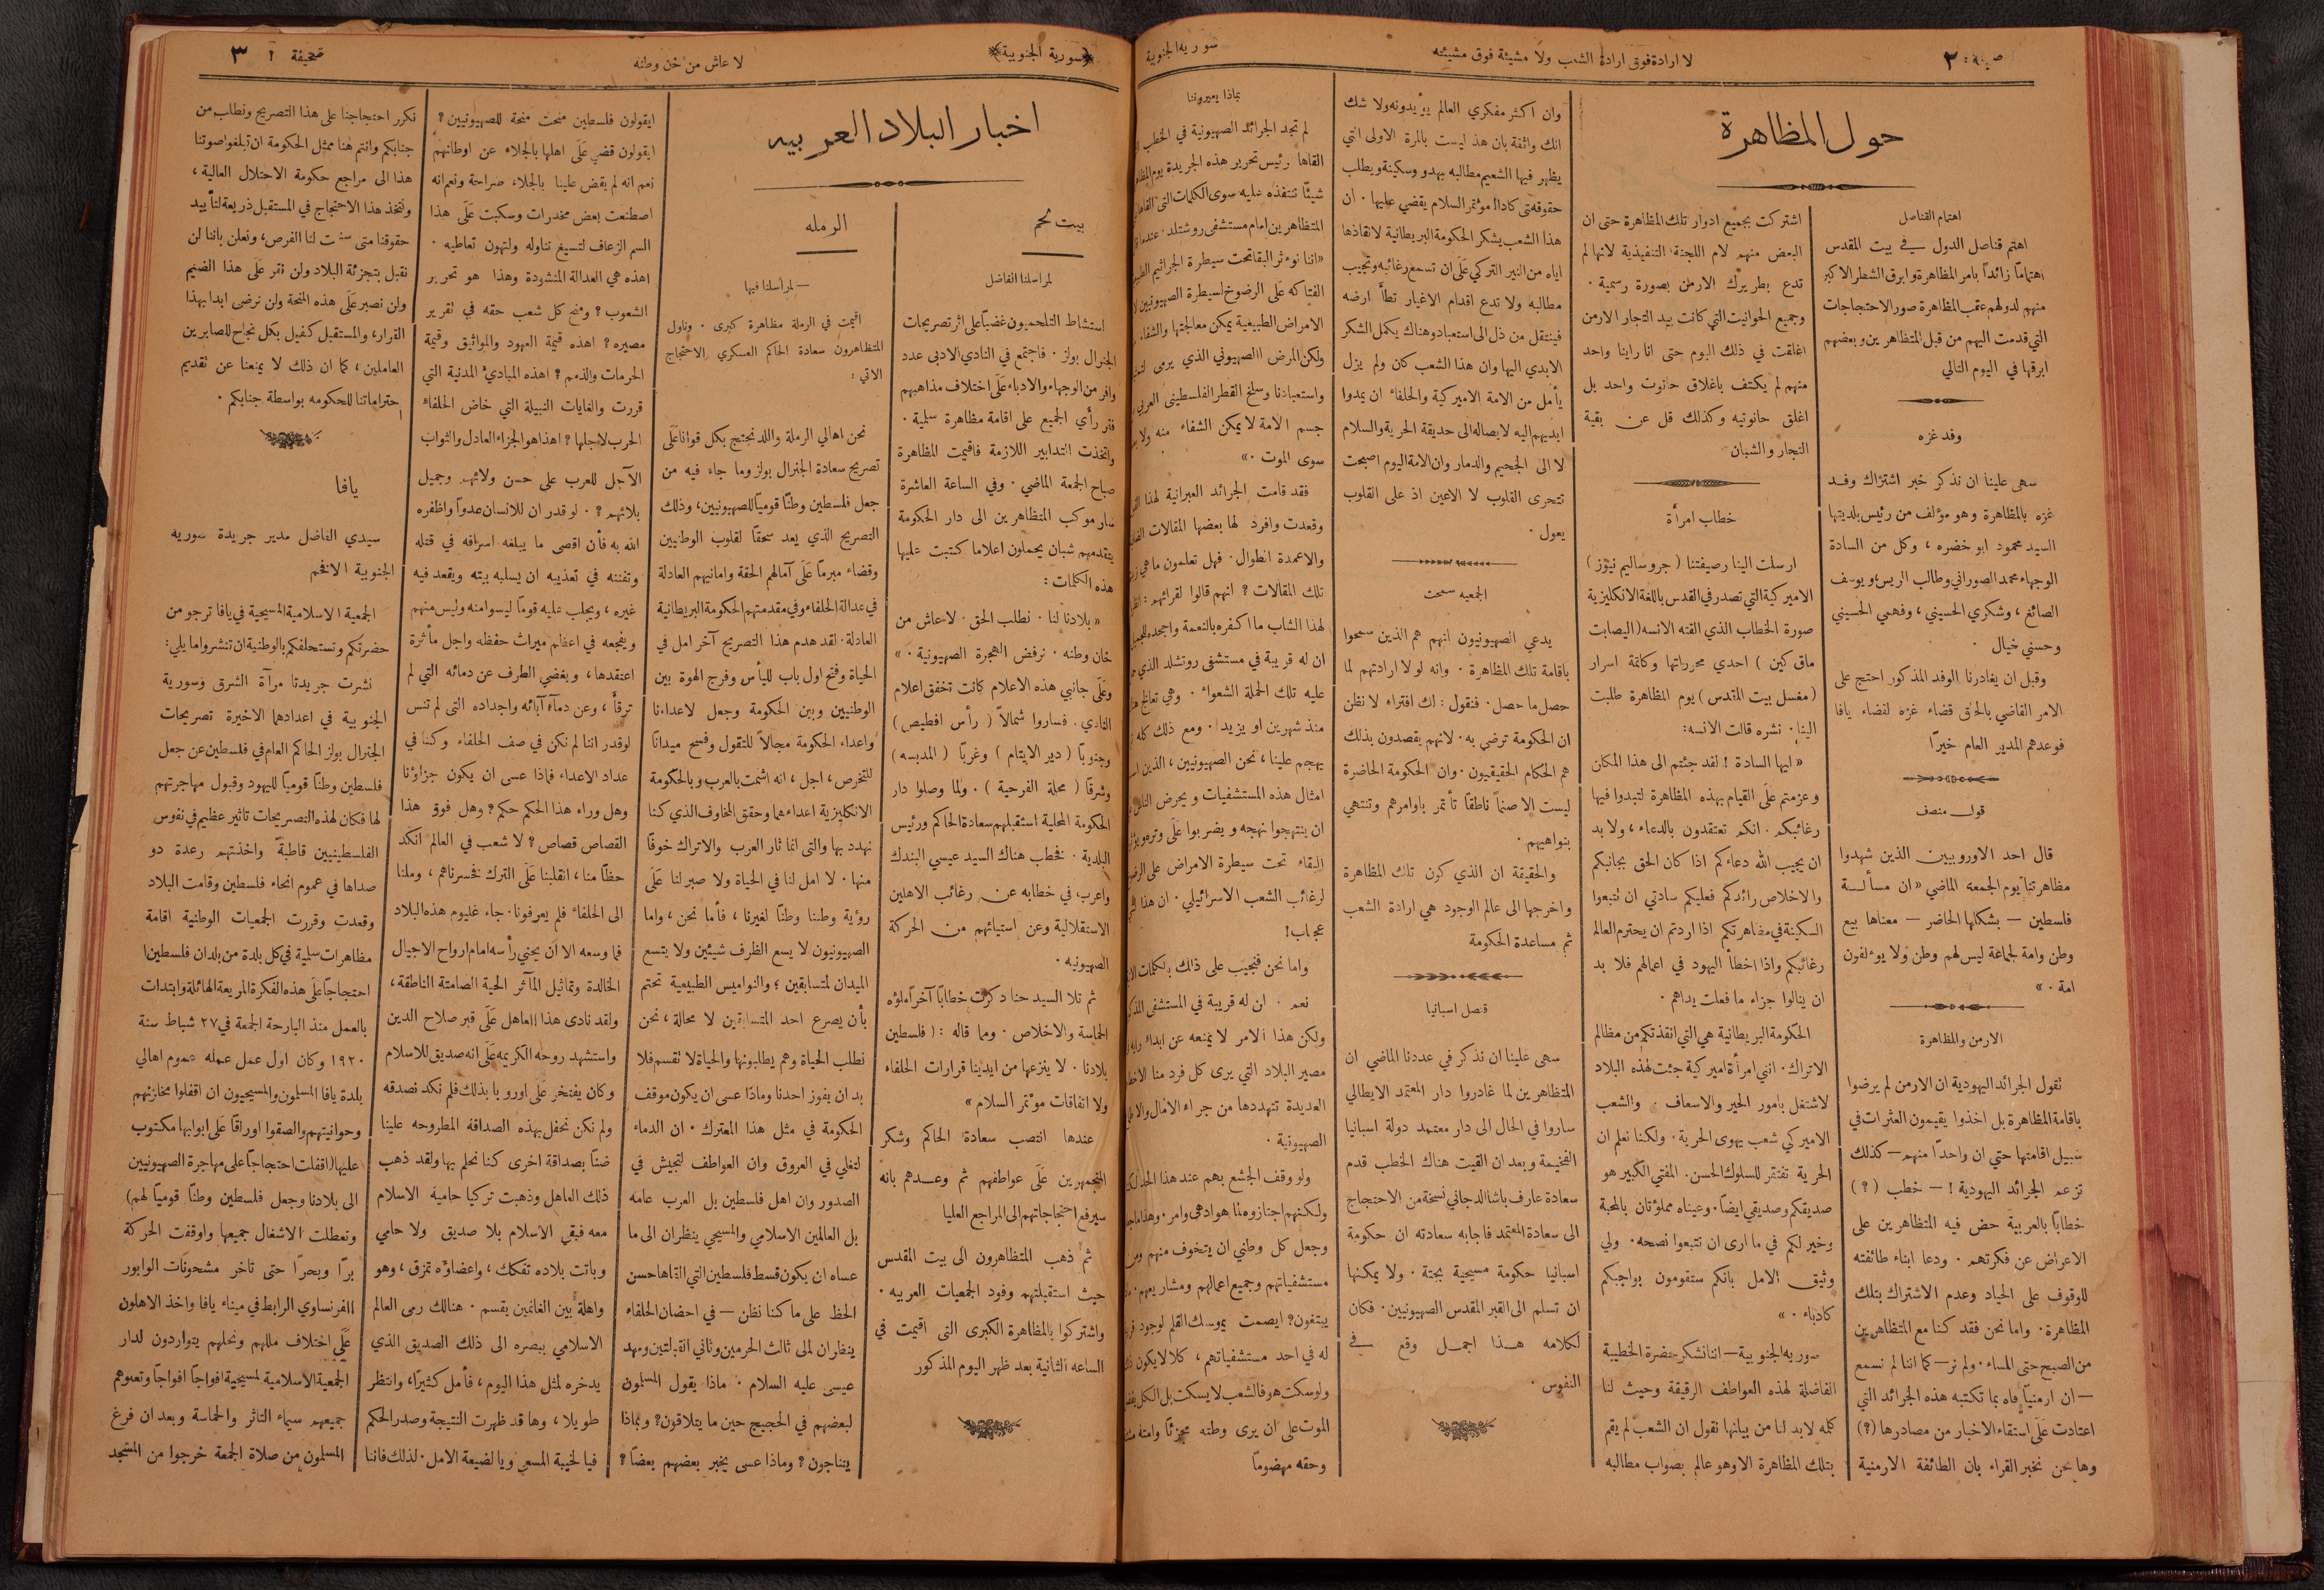 صحيفة ٢
لا ارادة فوق ارادة الشعب ولا مشيئة فوق مشيئته
سورية الجنوبية
حول المظاهرة
اهتمام القناصل
اهتم قناصل الدول في بيت المقدس
اهتماماً زائداً بامر المظاهرة وابرق الشطر الاكبر
منهم لدولهم عقب المظاهرة صور الاحتجاجات
التي قدمت اليهم من قبل المتظاهرين وبعضهم
ابرقها في اليوم التالي
وفد غزه
سهى علينا ان نذكر خبر اشتراك وفد
غزه بالمظاهرة وهو مؤلف من رئيس بلديتها
السيد محمود ابو خضره ، وكل من السادة
الوجهاء محمد الصوراني وطالب الريس ويوسف
الصائغ ، وشكري الحسيني ، وفهمي الحسيني
وحسني خيال .
وقبل ان يغادرنا الوفد المذكور احتج على
الامر القاضي بالحاق قضاء غزه لقضاء يافا
فوعدهم المدير العام خيراً
قول منصف
قال احد الاوروبيين الذين شهدوا
مظاهرتنا يوم الجمعه الماضي « ان مسألة
فلسطين — بشكلها الحاضر — معناها بيع
وطن وامة لجماعة ليس لهم وطن ولا يوءلفون
امة . »
الارمن والمظاهرة
تقول الجرائد اليهودية ان الارمن لم يرضوا
باقامة المظاهرة بل اخذوا يقيمون العثرات في
سبيل اقامتها حتى ان واحداً منهم — كذلك
تزعم الجرائد اليهودية ! — خطب (؟)
خطاباً بالعربية حض فيه المتظاهرين على
الاعراض عن فكرتهم . ودعا ابناء طائفته
للوقوف على الحياد وعدم الاشتراك بتلك
المظاهرة . واما نحن فقد كنا مع المتظاهرين
من الصبح حتى المساء . ولم نر — كما اننا لم نسمع
— ان ارمنياً فاه بما تكتبه هذه الجرائد التي
اعتادت على استقاء الاخبار من مصادرها (؟)
وها نحن نخبر القراء بان الطائفة الارمنية
اشتركت بجميع ادوار تلك المظاهرة حتى ان
البعض منهم لام اللجنة التنفيذية لانها لم
تدع بطريرك الارمن بصورة رسمية .
وجميع الحوانيت التي كانت بيد التجار الارمن
اغلقت في ذلك اليوم حتى انا راينا واحد
منهم لم يكتف باغلاق حانوت واحد بل
اغلق حانوتيه وكذلك قل عن بقية
التجار والشبان
خطاب امرأة
ارسلت الينا رصيفتنا ( جروساليم نيوز )
الاميركية التي تصدر في القدس باللغة الانكليزية
صورة الخطاب الذي القته الانسه ( اليصابت
ماق كين ) احدي محرراتها وكاتمة اسرار
( مغسل بيت المقدس ) يوم المظاهرة طلبت
الينا . نشره قالت الانسه :
« ايها السادة ! لقد جئتم الى هذا المكان
وعزمتم على القيام بهذه المظاهرة لتبدوا فيها
رغائبكم . انكم تعتقدون بالدعاء ، ولا بد
ان يجيب الله دعاءكم اذا كان الحق بجانبكم
والاخلاص رائدكم فعليكم سادتي ان تتبعوا
السكينة في مظاهرتكم اذا اردتم ان يحترم العالم
رغائبكم واذا اخطأ اليهود في اعمالهم فلا بد
ان ينالوا جزاء ما فعلت يداهم .
الحكومة البريطانية هي التي انقذتكم من مظالم
الاتراك . انني امرأة اميركية جئت لهذه البلاد
لاشتغل بامور الخير والاسعاف . والشعب
الاميركي شعب يهوى الحرية . ولكننا نعلم ان
الحرية تفتقر للسلوك الحسن . المفتي الكبير هو
صديقكم وصديقي ايضاً . وعيناه مملؤتان بالمحبة
وخير لكم في ما ارى ان تتبعوا نصحه . ولي
وثيق الامل بانكم ستقومون بواجبكم
كادباء . »
سوريه الجنوبية — اننا نشكر حضرة الخطيبة
الفاضلة لهذه العواطف الرقيقة وحيث لنا
كلمه لابد لنا من بيانها نقول ان الشعب لم يقم
بتلك المظاهرة الا وهو عالم بصواب مطالبه
وان اكثر مفكري العالم يؤيدونه ولا شك
انك واثقة بان هذ ليست بالمرة الاولى التي
يظهر فيها الشعب مطالبه بهدو وسكينة ويطلب
هذا الشعب يشكر الحكومة البريطانية لانقاذها
اياه من النير التركي على ان تسمع رغائبه وتجيب
مطالبه ولا تدع اقدام الاغيار تطأ ارضه
فينتقل من ذل الى استعباد وهناك يكمل الشكر
الابدي اليها وان هذا الشعب كان ولم يزل
يأمل من الامة الاميركية والحلفاء ان يمدوا
ايديهم اليه لايصاله الى حديقة الحرية والسلام
لا الى الجحيم والدمار وان الامة اليوم اصبحت
تتحرى القلوب لا الاعين اذ على القلوب
يعول .
الجمعيه سمحت
يدعي الصهيونيون انهم هم الذين سمحوا
باقامة تلك المظاهرة . وانه لولا ارادتهم لما
حصل ما حصل . فنقول : ذلك افتراء لا نظن
ان الحكومة ترضى به . لانهم يقصدون بذلك
هم الحكام الحقيقيون . وان الحكومة الحاضرة
ليست الا صنماً ناطقاً تأتمر باوامرهم وتنتهي
بنواهيهم .
والحقيقة ان الذي كون تلك المظاهرة
واخرجها الى عالم الوجود هي ارادة الشعب
ثم مساعدة الحكومة
قنصل اسبانيا
سهى علينا ان نذكر في عددنا الماضي ان
المتظاهرين لما غادروا دار المعتمد الايطالي
ساروا في الحال الى دار معتمد دولة اسبانيا
الفخيمة وبعد ان القيت هناك الخطب قدم
سعادة عارف باشا الدجاني نسخة من الاحتجاج
الى سعادة المعتمد فاجابه سعادته ان حكومة
اسبانيا حكومة مسيحية بحتة . ولا يمكنها
ان تسلم الى القبر المقدس الصهيونيين . فكان
لكلامه هذا اجمل وقع في
النفوس .
بماذا يعيروننا
لم تجد الجرائد الصهيونية في الخطب
القاها رئيس تحرير هذه الجريدة يوم
شيئاً تنتقده عليه سوى الكلمات التي القاها
المتظاهرين امام مستشفى روشتلد .
« اننا نوءثر البقاء تحت سيطرة الجراثيم
الفتاكه على الرضوخ لسيطرة الصهيونيين
الامراض الطبيعية يمكن معالجتها والشفاء
ولكن المرض الصهيوني الذي يرمى
واستعبادنا وسلخ القطر الفلسطيني العربي
جسم الامة لا يمكن الشفاء منه
سوى الموت . »
فقد قامت الجرائد العبرانية لهذا
وقعدت وافرد لها بعضها المقالات
والاعمدة الطوال . فهل تعلمون ما هي
تلك المقالات ؟ انهم قالوا لقرائهم :
لهذا الشاب ما اكفره بالنعمة واجحده
ان له قريبة في مستشفى روتشلد الذي
عليه تلك الحملة الشعواء . وهي تعالج
منذ شهرين او يزيد ! . ومع ذلك كله
يهجم علينا ، نحن الصهيونيين ، الذين
امثال هذه المستشفيات ويحرض الناس
ان ينتهجوا نهجه ويضربوا على وتره
البقاء تحت سيطرة الامراض على
لرغائب الشعب الاسرائيلي . ان هذا
عجاب !
واما نحن فنجيب على ذلك بالكلمات
نعم . ان له قريبة في المستشفى
ولكن هذا الامر لا يمنعه عن ابداء
مصير البلاد التي يرى كل فرد منا
العديدة تتهددها من جراء الامال
الصهيونية .
ولو وقف الجشع بهم عند هذا الحد
ولكنهم اجتازوه لما هو ادهى وامر .
وجعل كل وطني ان يتخوف منهم
مستشفياتهم وجميع اعمالهم ومشاريعهم .
يبتغون ؟ ايصمت يوسك القلم لوجود
له في احد مستشفياتهم ، كلا لا يكون
ولو سكت هو فالشعب لا يسكت بل الكل
الموت على ان يرى وطنه مجزئاً وامته
وحقه مهضوماً
﴿سورية الجنوبية﴾
لا عاش من خن وطنه
صحيفة ٣
اخبار البلاد العربيه
بيت لحم
لمراسلنا الفاضل
استشاط التلحميون غضباً على اثر تصريحات
الجنرال بولز . فاجتمع في النادي الادبي عدد
وافر من الوجهاء والادباء على اختلاف مذاهبهم
فقر رأي الجميع على اقامة مظاهرة سلمية .
واتخذت التدابير اللازمة فاقيمت المظاهرة
صباح الجمعة الماضي . وفي الساعة العاشرة
سار موكب المتظاهرين الى دار الحكومة
يتقدمهم شبان يحملون اعلاما كتبت عليها
هذه الكلمات :
« بلادنا لنا . نطلب الحق . لا عاش من
خان وطنه . نرفض الهجرة الصهيونية . »
وعلى جانبي هذه الاعلام كانت تخفق اعلام
النادي . فساروا شمالاً ( رأس افطيس )
وجنوباً ( دير الايتام ) وغرباً ( المدبسه )
وشرقاً ( محلة الفرحية ) . ولما وصلوا دار
الحكومة المحلية استقبلهم سعادة الحاكم ورئيس
البلدية . فخطب هناك السيد عيسي البندك
واعرب في خطابه عن رغائب الاهلين
الاستقلالية وعن استيائهم من الحركة
الصهيونيه .
ثم تلا السيد حنا دكرت خطاباً آخراً ملؤه
الحماسة والاخلاص . ومما قاله : ( فلسطين
بلادنا . لا ينزعها من ايدينا قرارات الحلفاء
ولا اتفاقات موءتمر السلام »
عندها انتصب سعادة الحاكم وشكر
المتجمهرين على عواطفهم ثم وعدهم بانه
سيرفع احتجاجاتهم الى المراجع العليا
ثم ذهب المتظاهرون الى بيت المقدس
حيث استقبلتهم وفود الجمعيات العربيه .
واشتركوا بالمظاهرة الكبرى التى اقيمت في
الساعه الثانية بعد ظهر اليوم المذكور
الرمله
— لمراسلنا فيها
اقيمت في الرملة مظاهرة كبرى . وناول
المتظاهرون سعادة الحاكم العسكري الاحتجاج
الاتي :
نحن اهالي الرملة واللد نحتج بكل قوانا على
تصريح سعادة الجنرال بولز وما جاء فيه من
جعل فلسطين وطناً قومياً للصهيونيين ، وذلك
التصريح الذي يعد سحقاً لقلوب الوطنيين
وقضاء مبرماً على آمالهم الحقة وامانيهم العادلة
في عدالة الحلفاء وفي مقدمتهم الحكومة البريطانية
العادلة . لقد هدم هذا التصريح آخر امل في
الحياة وفتح اول باب لليأس وفرج الهوة بين
الوطنيين وبين الحكومة وجعل لاعدائنا
واعداء الحكومة مجالاً للتقول وفسح ميداناً
للتخرص ، اجل ، انه اشمت بالعرب وبالحكومة
الانكليزية اعداءهما وحقق المخاوف الذي كنا
نهدد بها والتى انما ثار العرب والاتراك خوفاً
منها . لا امل لنا في الحياة ولا صبر لنا على
رؤية وطننا وطناً لغيرنا ، فأما نحن ، واما
الصهيونيون لا يسع الظرف شيئين ولا يتسع
الميدان لمتسابقين ؛ والنواميس الطبيعية تحتم
بأن يصرع احد المتسابقين لا محالة ، نحن
نطلب الحياة وهم يطلبونها والحياة لا تقسم فلا
بد ان يفوز احدنا وماذا عسى ان يكون موقف
الحكومة في مثل هذا المعترك . ان الدماء
لتغلي في العروق وان العواطف لتجيش في
الصدور وان اهل فلسطين بل العرب عامه
بل العالمين الاسلامي والمسيحي ينظران الى ما
عساه ان يكون قسط فلسطين التي القاها حسن
الحظ على ما كنا نظن — في احضان الحلفاء
ينظران الى ثالث الحرمين وثاني القبلتين ومهد
عيسى عليه السلام . ماذا يقول المسلمون
لبعضهم في الحجيج حين ما يتلاقون ؟ وبماذا
يتناجون ؟ وماذا عسى يخبر بعضهم بعضاً ؟
ايقولون فلسطين منحت منحة للصهيونيين ؟
ايقولون قضي على اهلها بالجلاء عن اوطانهم
نعم انه لم يقض علينا بالجلاء صراحة ونعم انه
اصطنعت بعض مخدرات وسكبت على هذا
السم الزعاف لتسيغ تناوله ولتهون تعاطيه .
اهذه هي العدالة المنشودة وهذا هو تحرير
الشعوب ؟ ومنح كل شعب حقه في تقرير
مصيره ؟ اهذه قيمة العهود والمواثيق وقيمة
الحرمات والذمم ؟ اهذه المبادئ المدنية التي
قررت والغايات النبيلة التي خاض الحلفاء
الحرب لاجلها ؟ اهذا هو الجزاء العادل والثواب
الآجل للعرب على حسن ولائهم وجميل
بلائهم ؟ . لو قدر ان للانسان عدواً واظفره
الله به فأن اقصى ما يبلغه اسرافه في قتله
وتفننه في تعذيبه ان يسلبه بيته ويقعد فيه
غيره ، ويجلب عليه قوماً ليسوا منه وليس منهم
ويفجعه في اعظم ميراث حفظه واجل مأثرة
اعتقدها ، ويغضي الطرف عن دمائه التي لم
ترقأ ، وعن دمآء آبائه واجداده التى لم تنس
لو قدر اننا لم نكن في صف الحلفاء وكنا في
عداد الاعداء فماذا عسى ان يكون جزاؤنا
وهل وراء هذا الحكم حكم ؟ وهل فوق هذا
القصاص قصاص ؟ لا شعب في العالم انكد
حظاً منا ، انقلبنا على الترك فخسرناهم ، وملنا
الى الحلفاء فلم يعرفونا . جاء غليوم هذه البلاد
فما وسعه الا ان يحني رأسه امام ارواح الاجيال
الخالدة وتماثيل المآثر الحية الصامتة الناطقة ،
ولقد نادى هذا العاهل على قبر صلاح الدين
واستشهد روحه الكريمه على انه صديق للاسلام
وكان يفتخر على اوروبا بذلك فلم نكد نصدقه
ولم نكن نحفل بهذه الصداقة المطروحه علينا
ضناً بصداقة اخرى كنا نحلم بها ولقد ذهب
ذلك العاهل وذهبت تركيا حامية الاسلام
معه فبقي الاسلام بلا صديق ولا حامي
وباتت بلاده تفكك ، واعضاؤه تمزق ، وهو
واهله بين الغانمين يقسم . هنالك رمى العالم
الاسلامي ببصره الى ذلك الصديق الذي
يدخره لمثل هذا اليوم ، فأمل كثيراً ، وانتظر
طويلا ، وها قد ظهرت النتيجة وصدر الحكم
فيا لخيبة المسعى ويا لضيعة الامل . لذلك فاننا
نكرر احتجاجنا على هذا التصريح ونطلب من
جنابكم وانتم هنا ممثل الحكومة ان تبلغوا صوتنا
هذا الى مراجع حكومة الاحتلال العالية ،
ونتخذ هذا الاحتجاج في المستقبل ذريعة لتأييد
حقوقنا متى سنحت لنا الفرص ، ونعلن باننا لن
نقبل بتجزئة البلاد ولن نقر على هذا الضيم
ولن نصبر على هذه المنحة ولن نرضى ابدا بهذا
القرار ، والمستقبل كفيل بكل نجاح للصابرين
العاملين ، كما ان ذلك لا يمنعنا عن تقديم
احتراماتنا للحكومه بواسطة جنابكم .
يافا
سيدي الفاضل مدير جريدة سوريه
الجنوبية الافخم
الجمعية الاسلامية المسيحية في يافا ترجو من
حضرتكم وتستحلفكم بالوطنية ان تنشروا ما يلي :
نشرت جريدتا مرآة الشرق وسورية
الجنوبية في اعدادهما الاخيرة تصريحات
الجنرال بولز الحاكم العام في فلسطين عن جعل
فلسطين وطناً قومياً لليهود وقبول مهاجرتهم
لها فكان لهذه التصريحات تاثير عظيم في نفوس
الفلسطينيين قاطبة واخذتهم رعدة دو
صداها في عموم انحاء فلسطين وقامت البلاد
وقعدت وقررت الجمعيات الوطنية اقامة
مظاهرات سلمية في كل بلدة من بلدان فلسطين
احتجاجاً على هذه الفكرة المريعة الهائلة وابتدات
بالعمل منذ البارحة الجمعة في ٢٧ شباط سنة
١٩٢٠ وكان اول عمل عمله عموم اهالي
بلدة يافا المسلمون والمسيحيون ان اقفلوا مخازنهم
وحوانيتهم والصقوا اوراقاً على ابوابها مكتوب
عليها ( اقفلت احتجاجاً على مهاجرة الصهيونيين
الى بلادنا وجعل فلسطين وطناً قومياً لهم )
وتعطلت الاشغال جميعها واوقفت الحركة
براً وبحراً حتى تاخر مشحونات الوابور
الفرنساوي الرابط في ميناء يافا واخذ الاهلون
على اختلاف مللهم ونحلهم يتواردون لدار
الجمعية الاسلامية لمسيحية افواجاً افواجاً وتعلوهم
جميعهم سيماء التاثر والحماسة وبعد ان فرغ
المسلمون من صلاة الجمعة خرجوا من المسجد